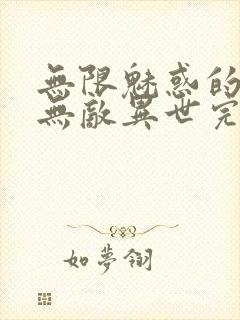 無限魅惑的
無敵異世完
如夢翎